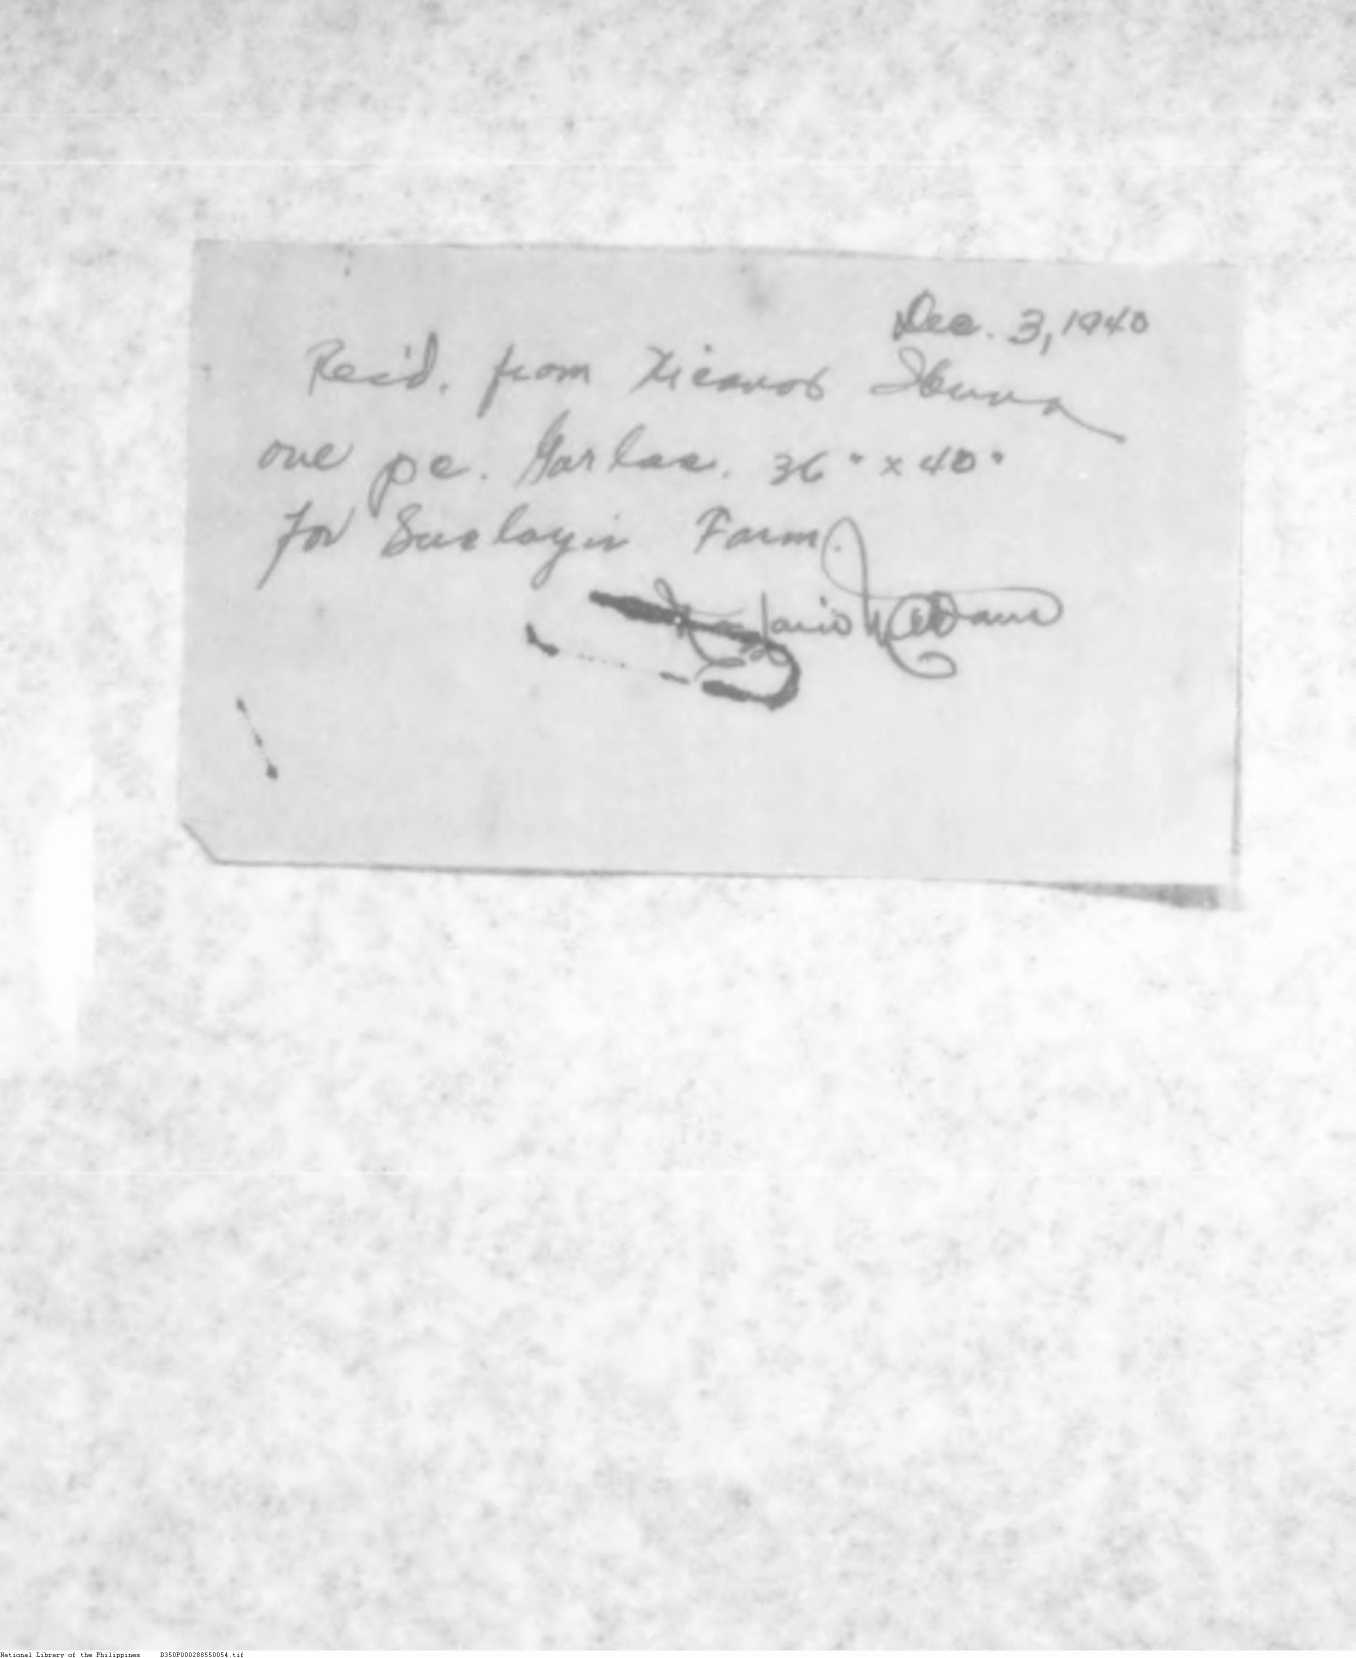 Dec. 3, 1940
Rec'd. from Nicanor Ibuna
one pc. Garlac. 36" x 40"
for Buclayin Farm.
National Library of the Philippines B350P000288550054.tif